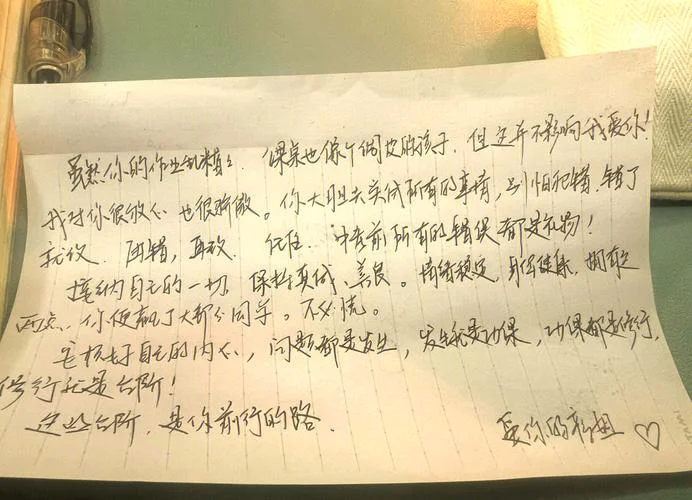 虽然你的作业乱糟糟，课桌也像个调皮的孩子，但这并不影响我爱你！
我对你很放心也很骄傲。你大胆去完成所有的事情，别怕犯错，错了
就改，再错，再改，记住，中考前所有的错误都是礼物！
接纳自己的一切，保持真诚、善良。情绪稳定，身体健康，拥有这
两点，你便赢了大部分同学。不必慌。
自己的内心，问题都是发生，发生就是功课，功课都是修行，
修行就是台阶！
这些台阶，是你前行的路
爱你的 姐 ♡